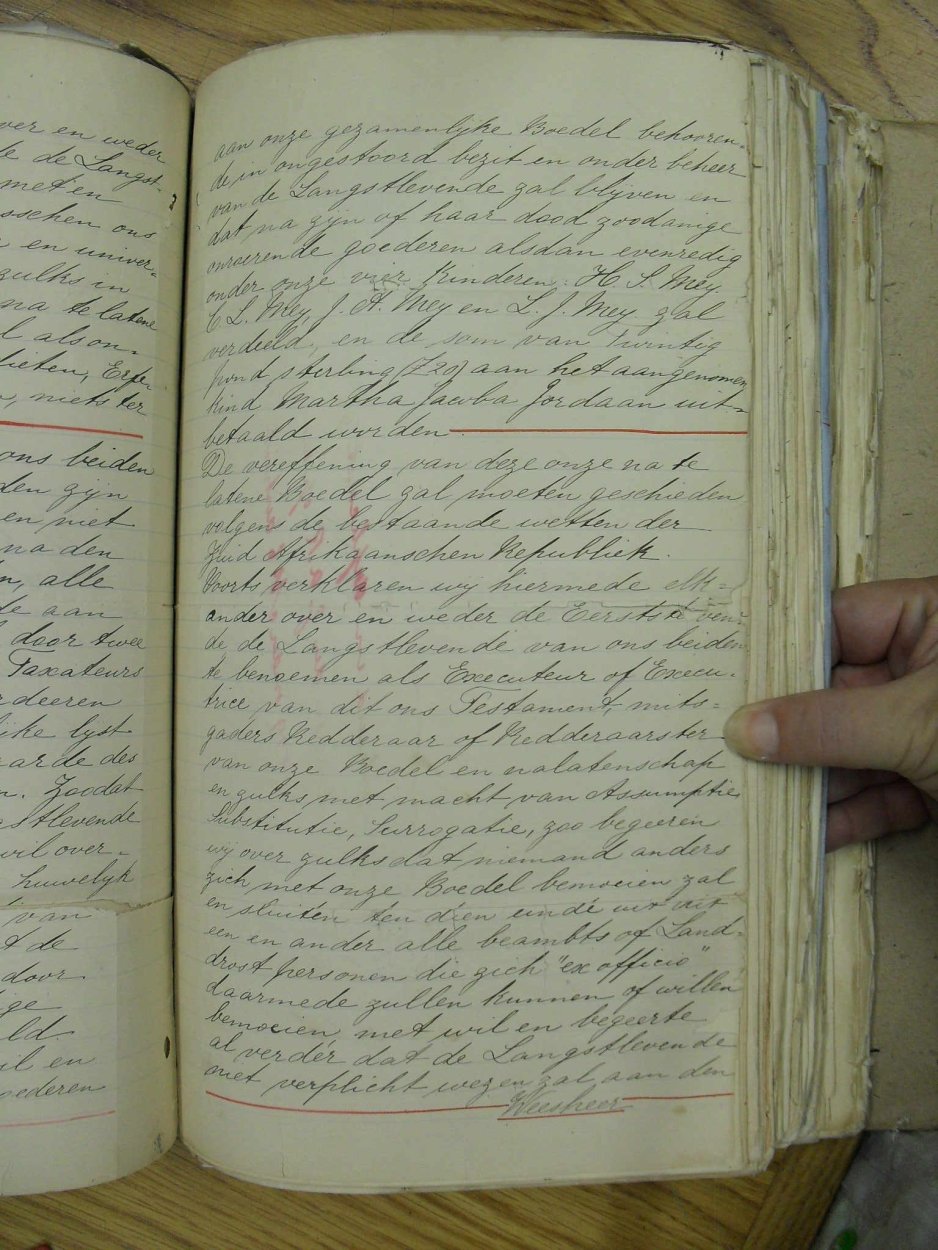 ver en weder
de Langst-
met en
sschen ons
en univer-
zulks in
na te latene
l als on-
lieten, Erfe-
niets ter
ons beiden
den zijn
en niet
na den
n, alle
de aan
door twee
Taxateurs
rdeeren
ijke lyst
aarde des
n. Zoodat
stlevende
wil over-
huwelyk
van
t de
door
ge
ld.
il en
oederen
aan onze gezamenlijke Boedel behooren-
de in ongestoord bezit en onder beheer
van de Langstlevende zal blijven en
dat na zijn of haar dood zoodanige
onroerende goederen alsdan evenredig
onder onze vier Kinderen: H. S. Mey.
C. L. Mey, J. A. Mey en L. J. Mey. zal
verdeeld, en de som van Twintig
pond sterling (£20) aan het aangenomen
kind, Martha Jacoba Jordaan uit-
betaald worden
De vereffening van deze onze na te
latene Boedel zal moeten geschieden
volgens de bestaande wetten der
Zuid Afrikaanschen Republiek.
Voorts verklaren wij hiermede elk-
ander over en weder de Eerststerven-
de de Langstlevende van ons beiden
te benoemen als Executeur of Execu-
trice, van dit ons Testament, mits-
gaders Redderaar of Redderaarster
van onze Boedel en nalatenschap
en zulks met macht van Assumptie
Substitutie, Surrogatie, zoo begeeren
wij over zulks dat niemand anders
zich met onze Boedel bemoeien zal
en sluiten ten dien einde uit
een en ander alle beambts of Land-
drost personen die zich "ex officio"
daarmede zullen kunnen of willen
bemoeien met wil en begeerte
al verder dat de Langstlevende
niet verplicht wezen zal aan den
Weesheer